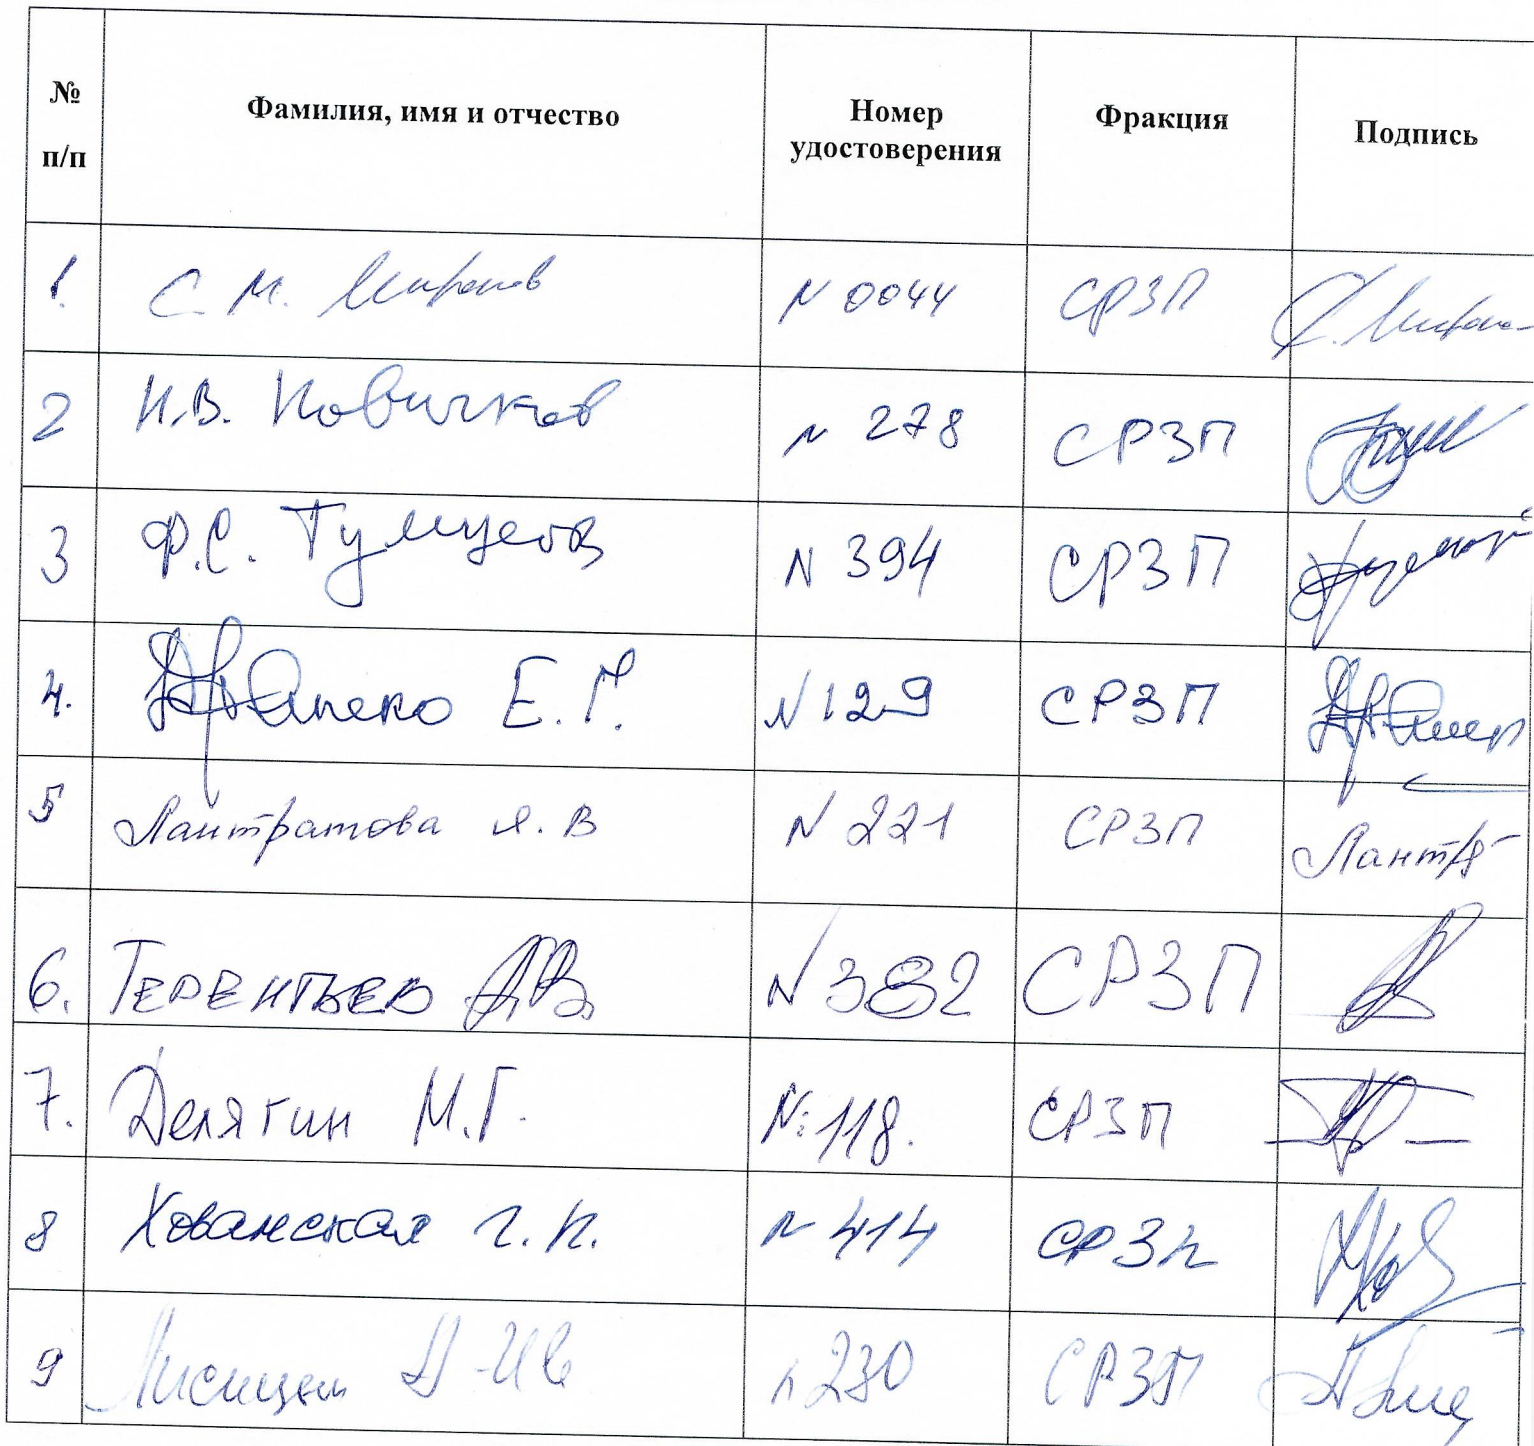 № п/п Фамилия, имя и отчество Номер удостоверения Фракция Подпись
1. С. М. Миронов N 0044 СРЗП С. Миронов
2 Н.В. Новичков N 278 СРЗП
3 Ф.С. Тумусов N 394 СРЗП
4. Драпеко Е.Г. N 129 СРЗП
5 Лантратова Я. В N 221 СРЗП Лантр
6. ТЕРЕНТЬЕВ А.В. N 382 СРЗП
7. Делягин М.Г. N: 118. СРЗП
8 Хованская Г.П. N 414 СРЗП
9 Лисицын N 230 СРЗП